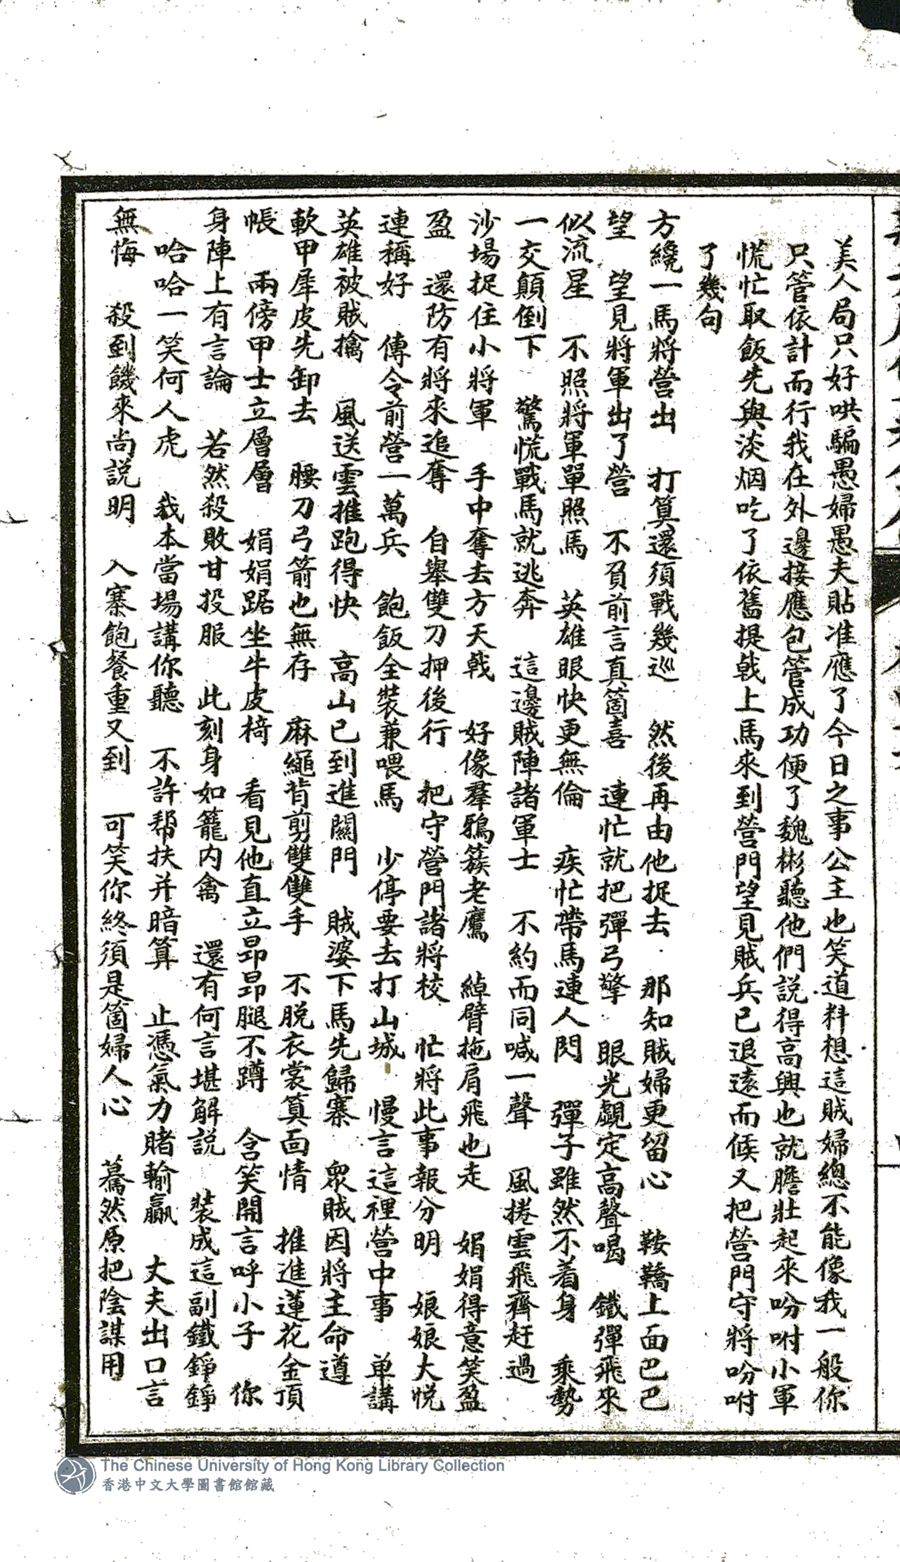 美人局只好哄騙愚婦愚夫貼准應了今日之事公主也笑道料想這賊婦總不能像我一般你
只管依計而行我在外邊接應包管成功便了魏彬聽他們說得高興也就膽壯起來吩咐小軍
慌忙取飯先與淡烟吃了依舊提戟上馬來到營門望見賊兵已退遠而候又把營門守將吩咐
了幾句
方纔一馬將營出　打算還須戰幾巡　然後再由他捉去　那知賊婦更留心　鞍鞽上面巴巴
望　望見將軍出了營　不負前言真箇喜　連忙就把彈弓擎　眼光覷定高聲喝　鐵彈飛來
似流星　不照將軍單照馬　英雄眼快更無倫　疾忙帶馬連人閃　彈子雖然不着身　乘勢
一交顛倒下　驚慌戰馬就逃奔　這邊賊陣諸軍士　不約而同喊一聲　風捲雲飛齊赶過
沙場捉住小將軍　手中奪去方天戟　好像羣鴉簇老鷹　綽臂拖肩飛也走　娟娟得意笑盈
盈　還防有將來追奪　自舉雙刀押後行　把守營門諸將校　忙將此事報分明　娘娘大悦
連稱好　傳令前營一萬兵　飽飯全裝兼喂馬　少停要去打山城　慢言這裡營中事　单講
英雄被賊擒　風送雲推跑得快　高山已到進關門　賊婆下馬先歸寨　眾賊因將主命遵
軟甲犀皮先卸去　腰刀弓箭也無存　麻繩背剪雙雙手　不脱衣裳算面情　推進蓮花金頂
帳　兩傍甲士立層層　娟娟踞坐牛皮椅　看見他直立昂昂腿不蹲　含笑開言呼小子　你
身陣上有言論　若然殺敗甘投服　此刻身如籠内禽　還有何言堪解説　裝成這副鐵錚錚
哈哈一笑何人虎　我本當場講你聽　不許帮扶并暗算　止憑氣力賭輸贏　丈夫出口言
無悔　殺到饑來尚説明　入寨飽餐重又到　可笑你終須是箇婦人心　驀然原把陰謀用
The Chinese University of Hong Kong Library Collection
香港中文大學圖書館館藏